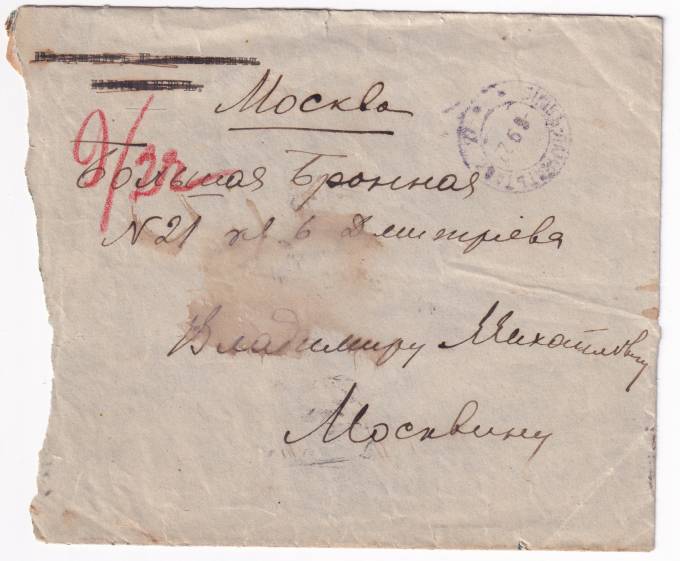 Москва
Большая Бронная
N 21 кв 6 Дмитрiева
Владимиру Михайловичу
Москвину